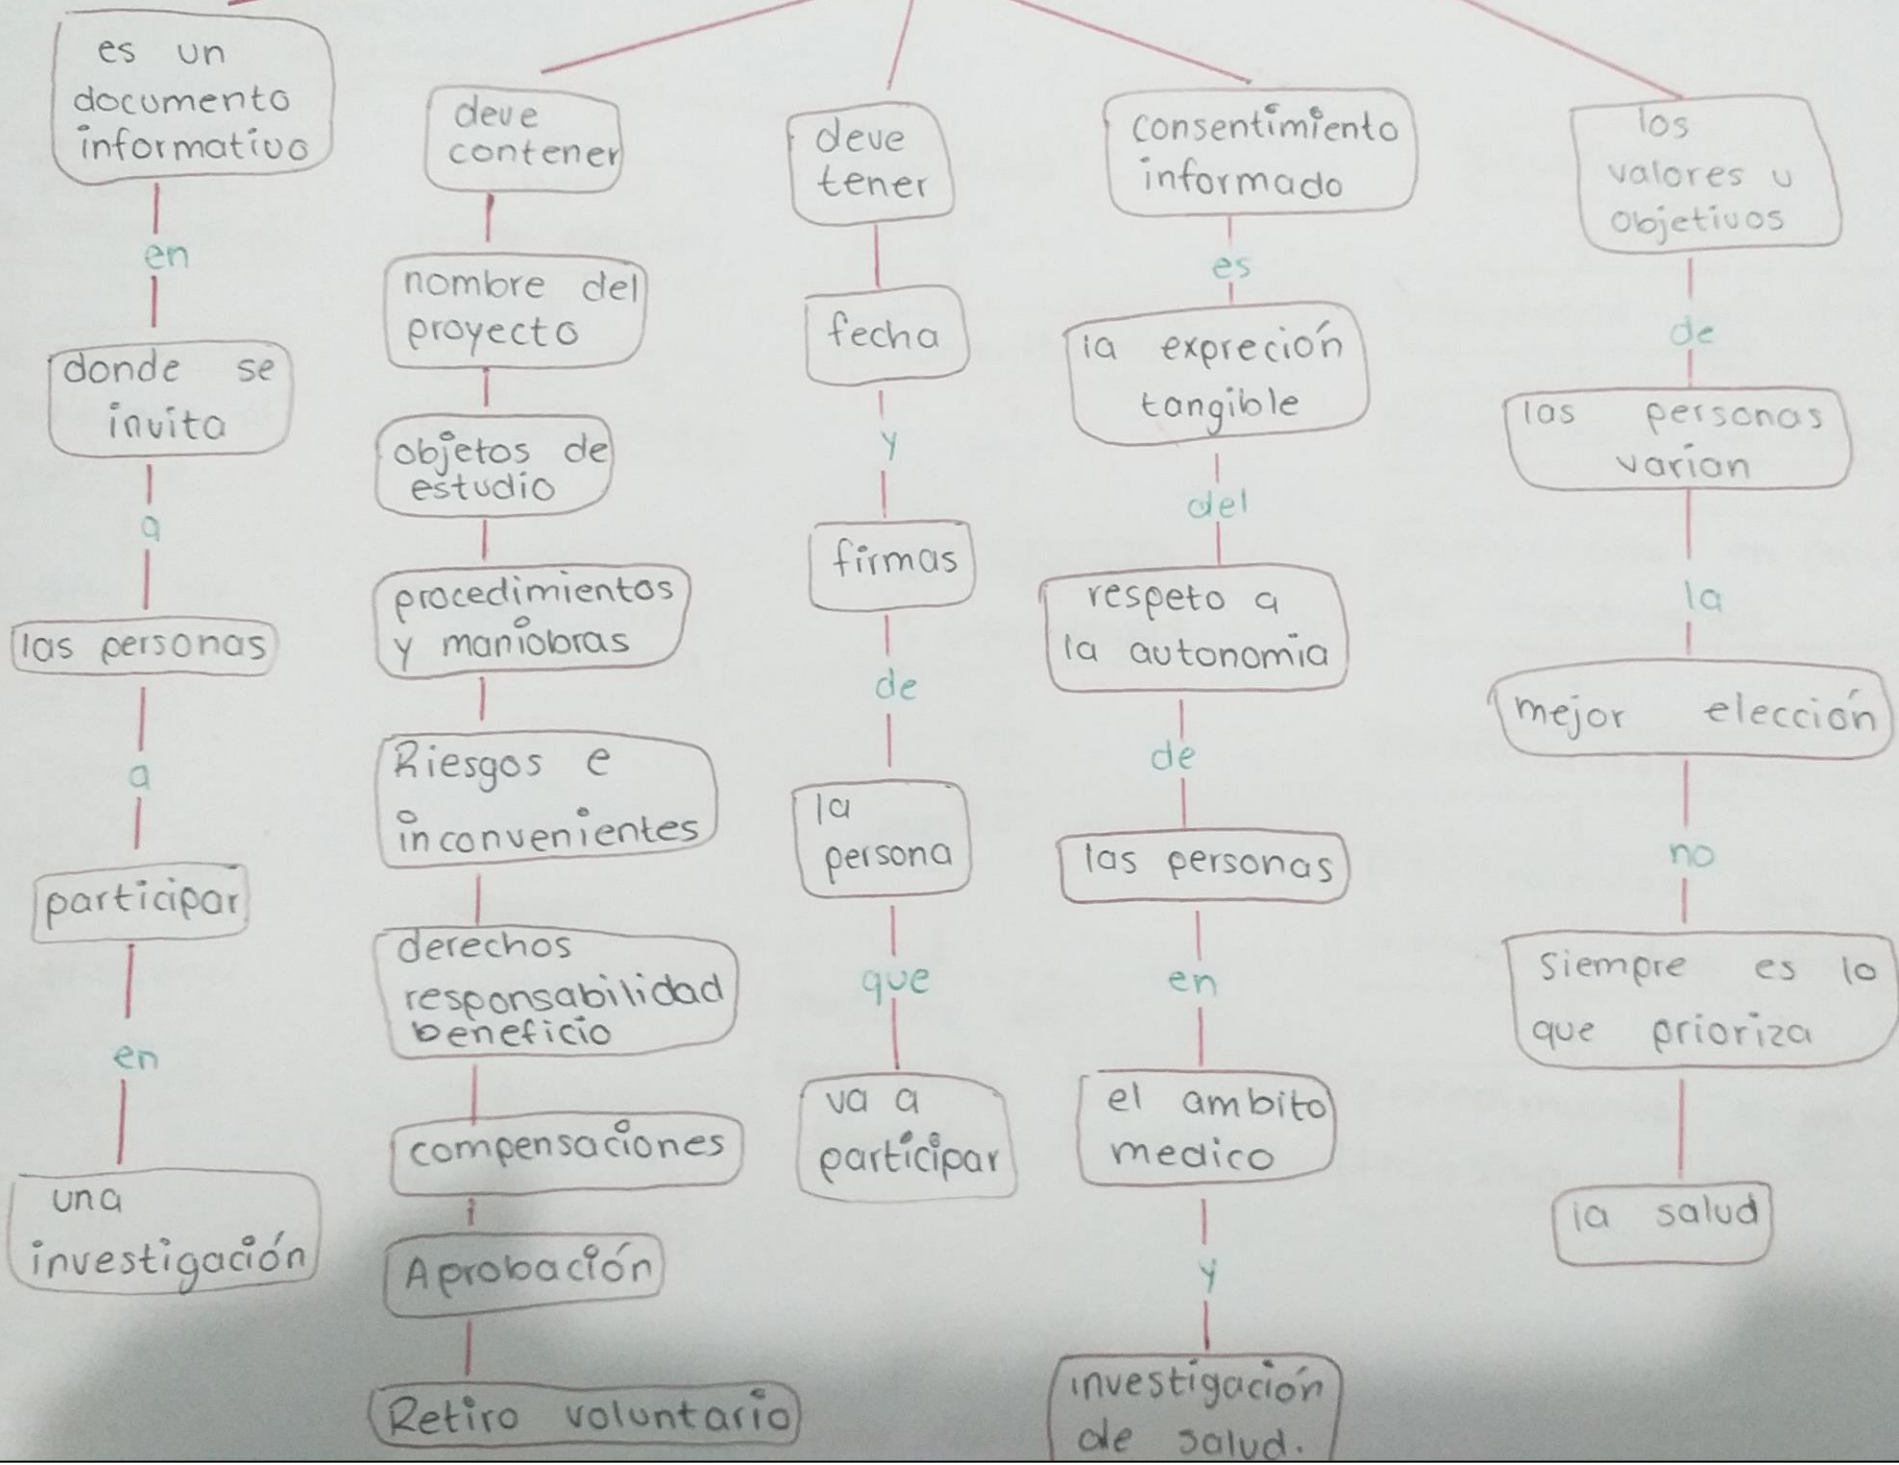 es un
documento
informativo
en
donde se
invita
a
las personas
a
participar
en
una
investigación
deve
contener
nombre del
proyecto
objetos de
estudio
procedimientos
y maniobras
Riesgos e
inconvenientes
derechos
responsabilidad
beneficio
compensaciones
Aprobación
Retiro voluntario
deve
tener
fecha
y
firmas
de
la
persona
que
va a
participar
consentimiento
informado
es
la expreción
tangible
del
respeto a
la autonomia
de
las personas
en
el ambito
medico
y
investigación
de salud.
los
valores u
objetivos
de
las personas
varian
la
mejor elección
no
siempre es lo
que prioriza
la salud